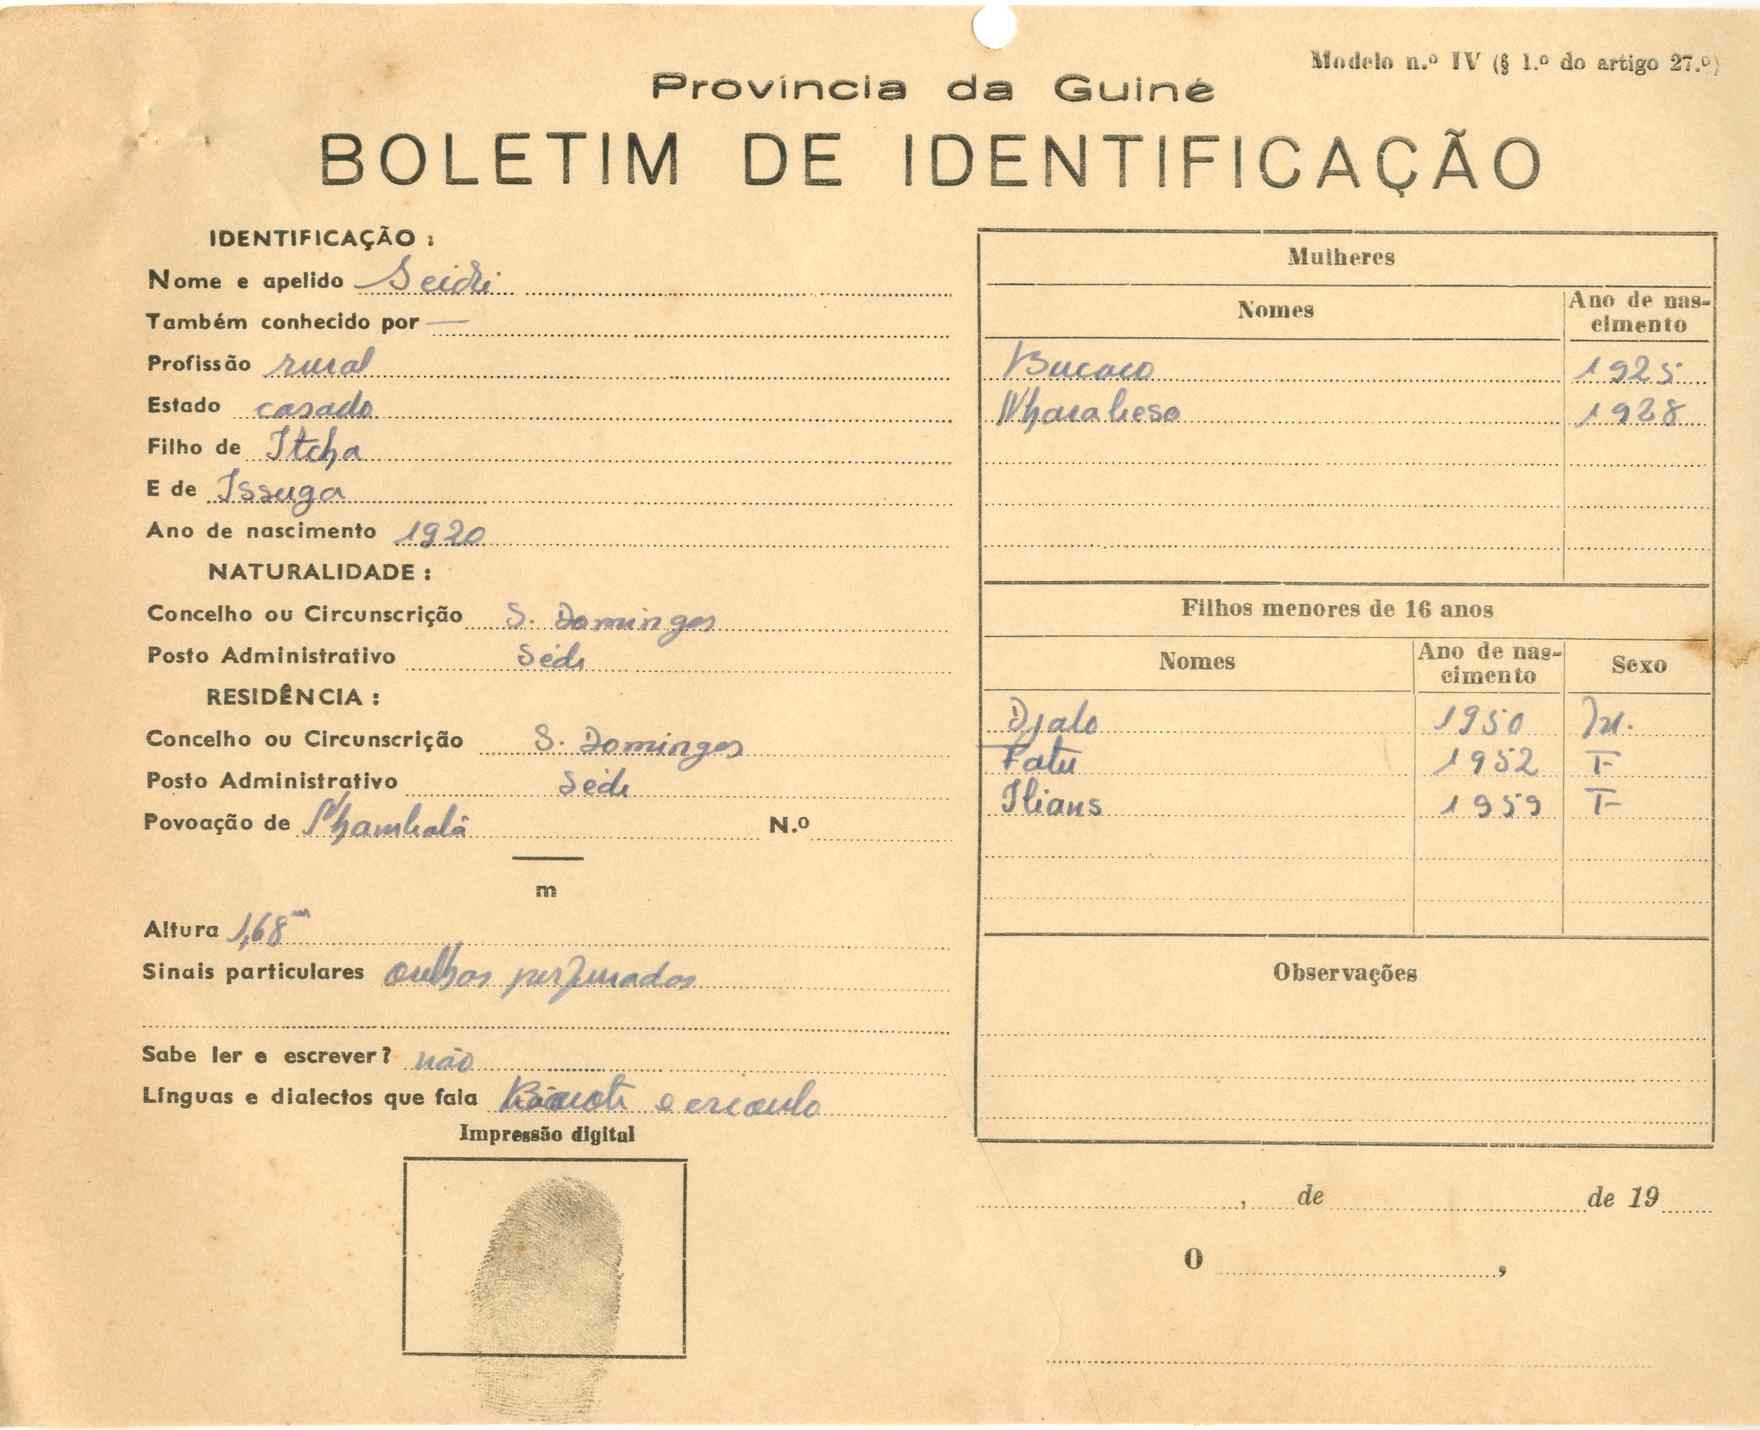 Modelo n.º IV (§ 1.º do artigo 27.º)
Província da Guiné
BOLETIM DE IDENTIFICAÇÃO
IDENTIFICAÇÃO :
Nome e apelido Seidi
Também conhecido por —
Profissão rural
Estado casado
Filho de Itcha
E de Issuga
Ano de nascimento 1920
NATURALIDADE :
Concelho ou Circunscrição S. Domingos
Posto Administrativo Séde
RESIDÊNCIA :
Concelho ou Circunscrição S. Domingos
Posto Administrativo Séde
Povoação de N.º
m
Altura 1,68 m
Sinais particulares perfurados
Sabe ler e escrever? não
Línguas e dialectos que fala e crioulo
Impressão digital
Mulheres
Nomes Ano de nas-
cimento
Bucaco 1925
1928
Filhos menores de 16 anos
Nomes Ano de nas-
cimento Sexo
Djalo 1950 M.
Fatu 1952 F
1959 F
Observações
, de de 19
O ,